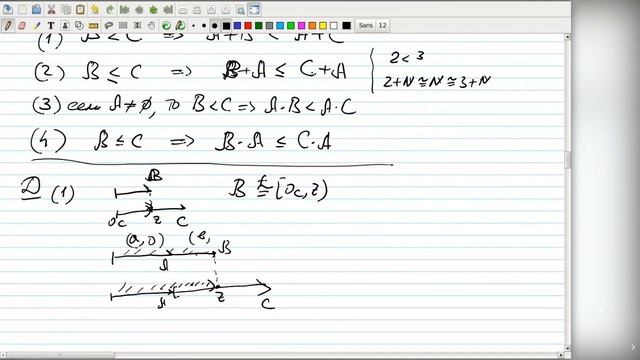 (1) B < C ⇒ A+B < A+C
(2) B ≤ C ⇒ B+A ≤ C+A
2 < 3
2+ℕ ≅ ℕ ≅ 3+ℕ
(3) если A ≠ ∅, то B < C ⇒ A·B < A·C
(4) B ≤ C ⇒ B·A ≤ C·A
D (1)
B
B ≅ᶠ [0c, z)
0c z C
(a,0) (b,
B
A
A z
C
Sans 12